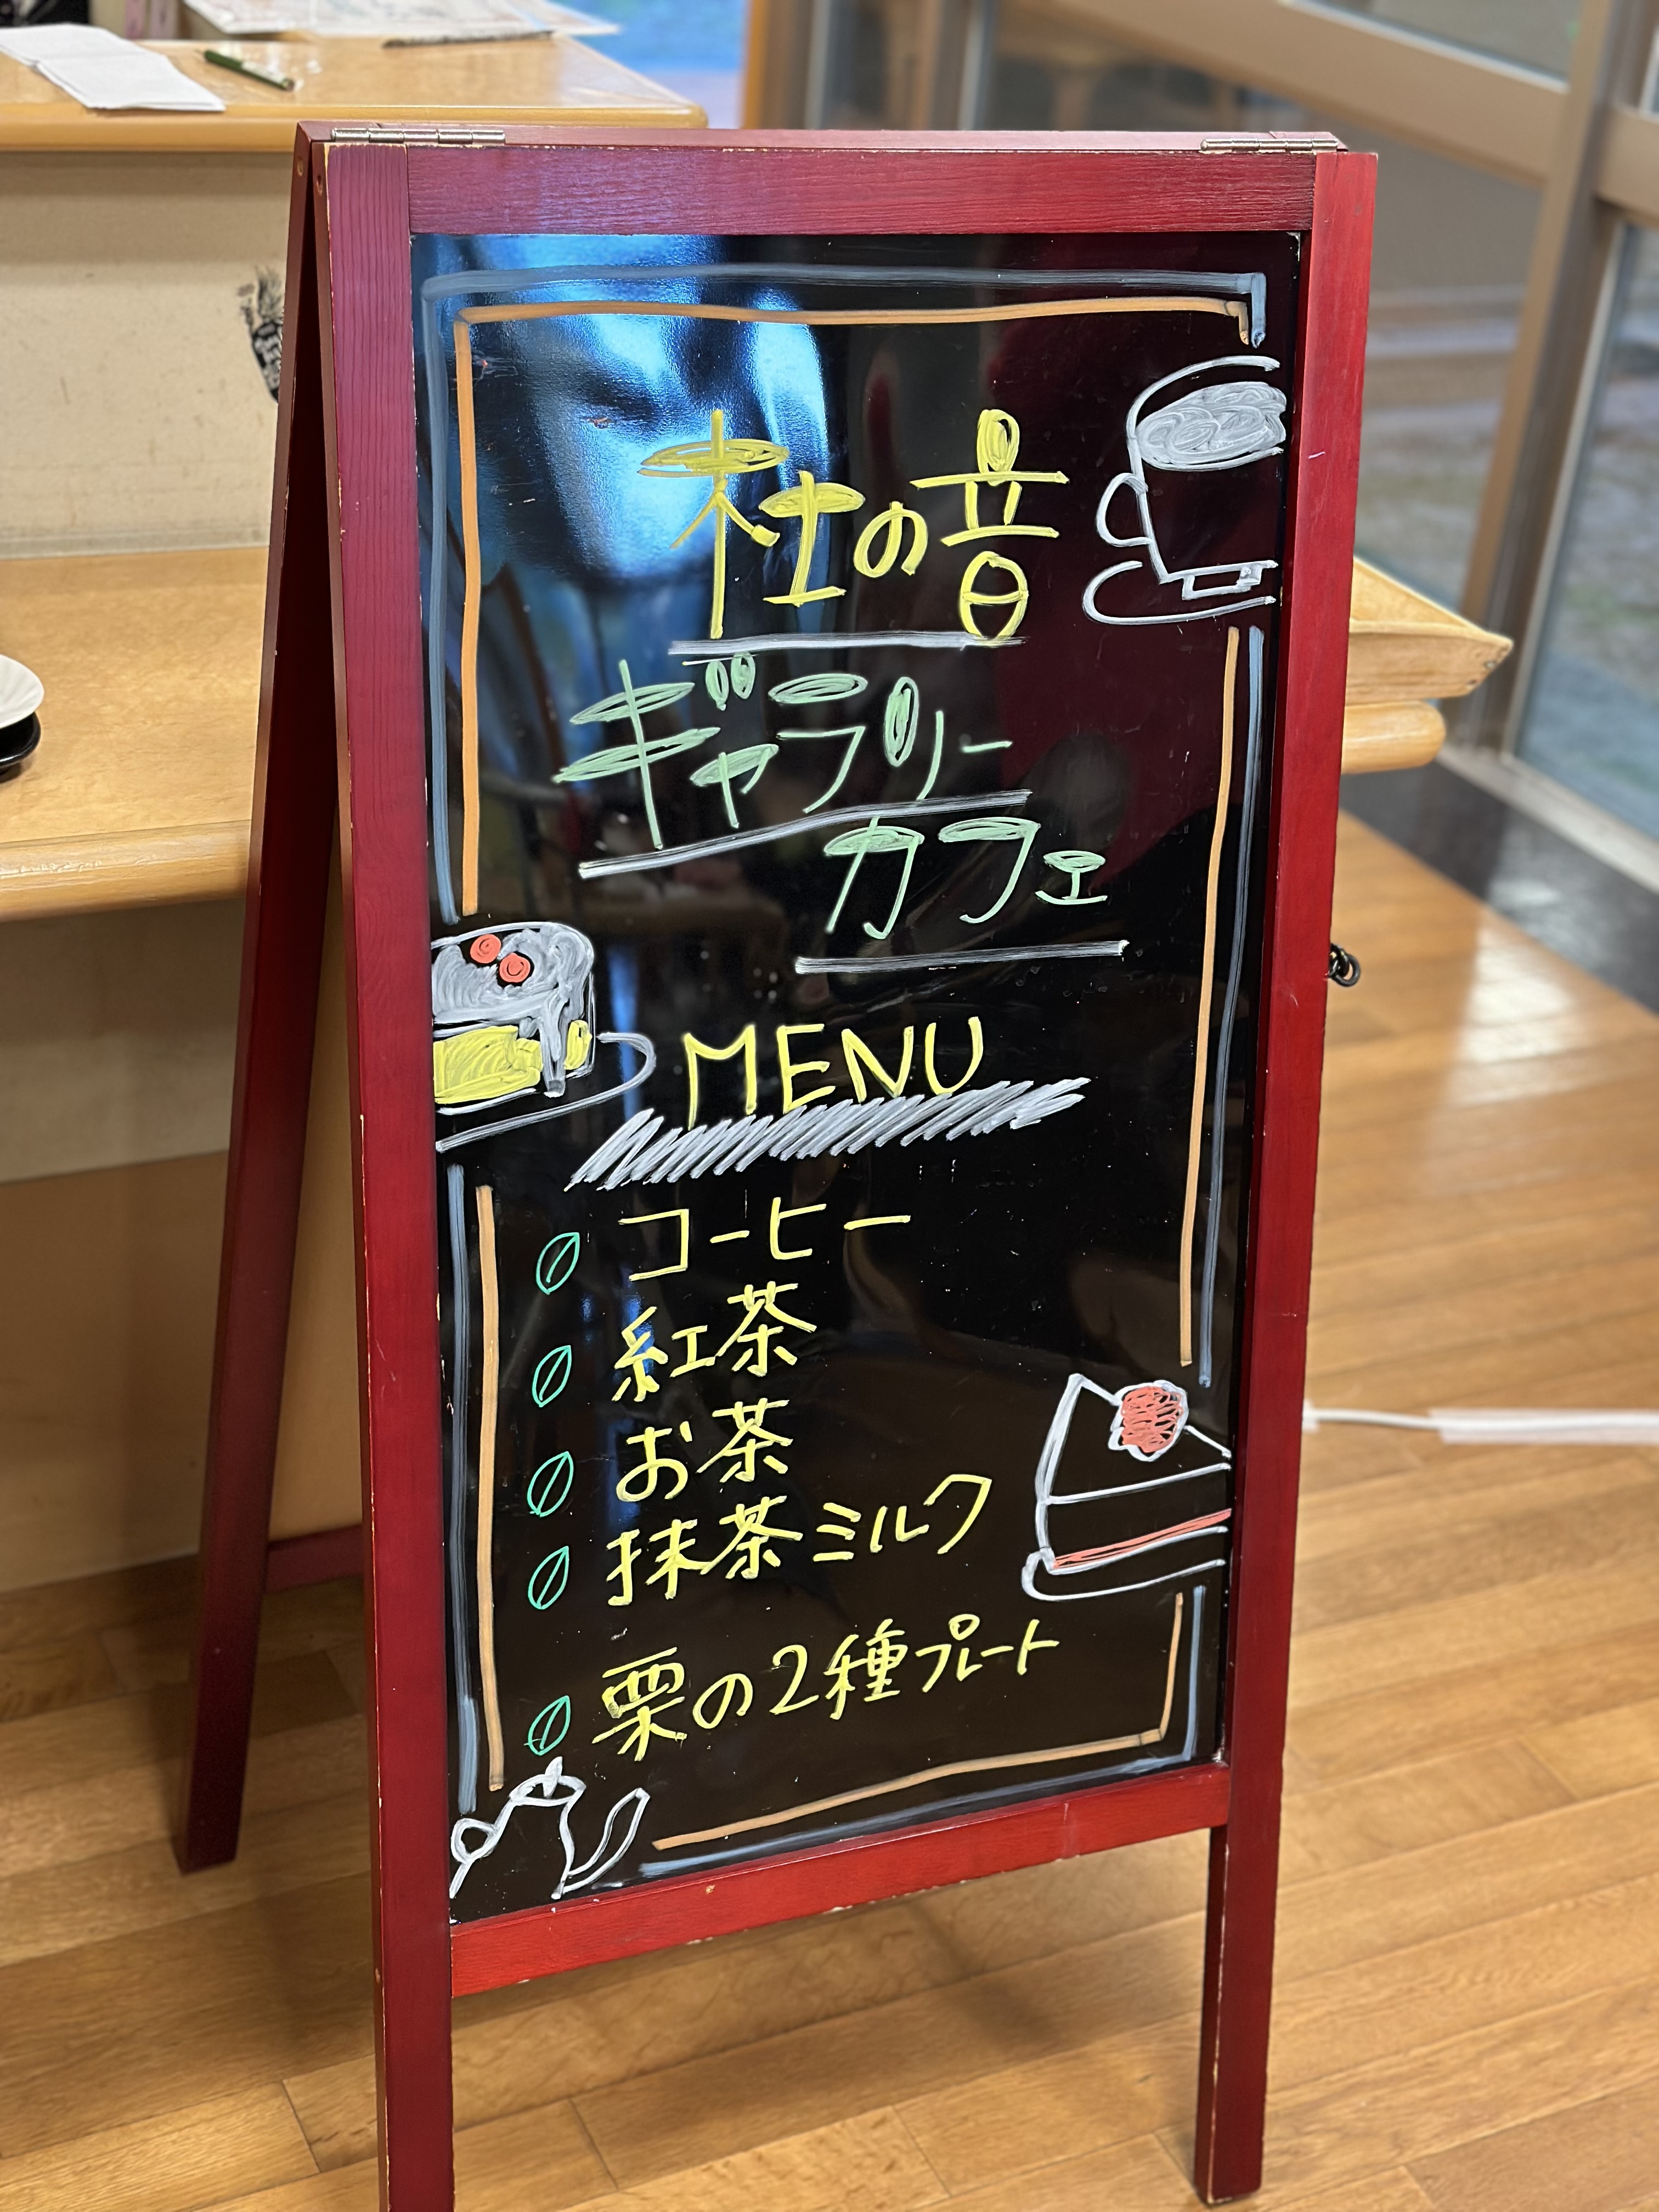 杜の音
ギャラリー
カフェ
MENU
コーヒー
紅茶
お茶
抹茶ミルク
栗の2種プレート